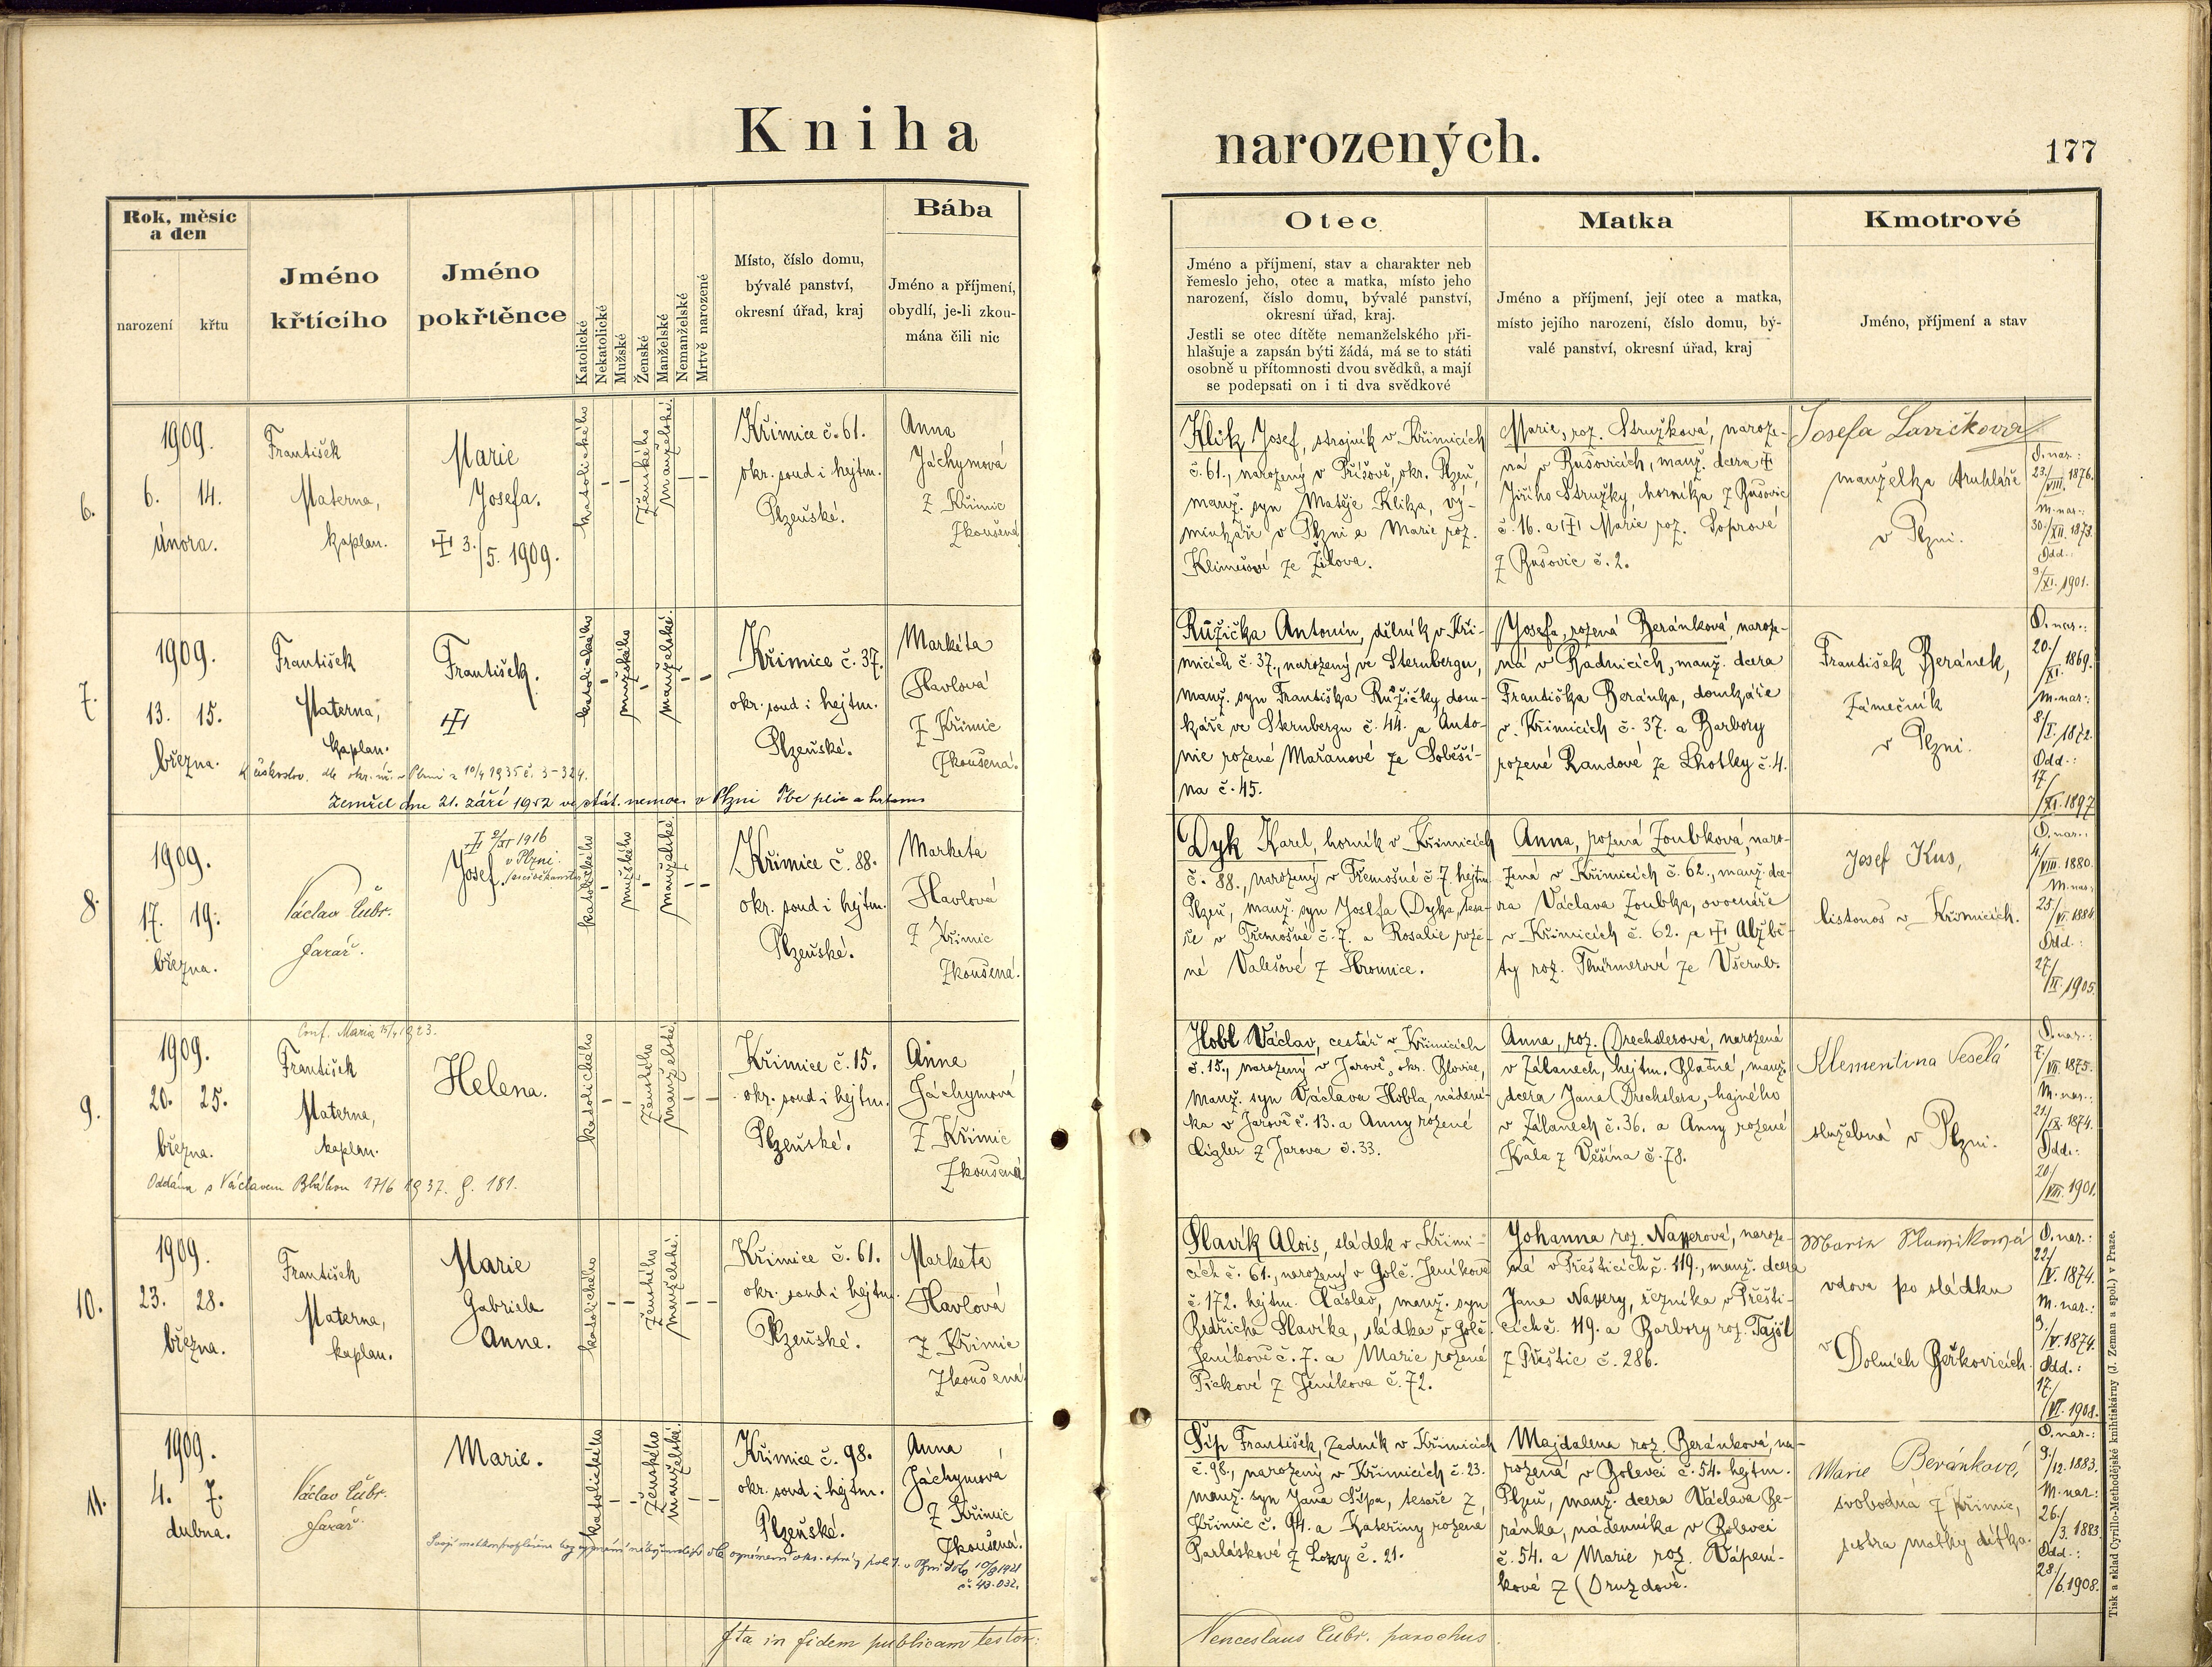 Kniha narozených.
177
Rok, měsíc
a den
narození
křtu
Jméno
křtícího
Jméno
pokřtěnce
Katolické
Nekatolické
Mužské
Ženské
Manželské
Nemanželské
Mrtvě narozené
Místo, číslo domu,
bývalé panství,
okresní úřad, kraj
Bába
Jméno a příjmení,
obydlí, je-li zkou-
mána čili nic
Otec
Jméno a příjmení, stav a charakter neb
řemeslo jeho, otec a matka, místo jeho
narození, číslo domu, bývalé panství,
okresní úřad, kraj.
Jestli se otec dítěte nemanželského při-
hlašuje a zapsán býti žádá, má se to státi
osobně u přítomnosti dvou svědků, a mají
se podepsati on i ti dva svědkové
Matka
Jméno a příjmení, její otec a matka,
místo jejího narození, číslo domu, bý-
valé panství, okresní úřad, kraj
Kmotrové
Jméno, příjmení a stav
6.
1909.
6. 14.
února.
František
Materna,
kaplan.
Marie
Josefa.
3./5. 1909.
katolického
ženského
manželské.
Křimice č. 61.
okr. soud i hejtm.
Plzeňské.
Anna
Jáchymová
z Křimic
Zkoušená
Klik Josef, strojník v Křimicích
č. 61., narozený v Příšově, okr. Plzeň,
manž. syn Matěje Klika, vý-
minkáře v Plzni a Marie roz.
Klimešové ze Žilova.
Marie, roz. Stružková, naroze-
ná v Bušovicích, manž. dcera
Jiřího Stružky, horníka z Bušovic
č. 16. a Marie roz. Soprové
z Bušovic č. 2.
Josefa Lavičková
manželka truhláře
v Plzni.
O. nar.:
23./VIII. 1876.
M. nar.:
30./XII. 1873.
Odd.:
9/XI. 1901.
7.
1909.
13. 15.
března.
František
Materna,
kaplan.
František.
katolického
mužského
manželské.
Křimice č. 37.
okr. soud i hejtm.
Plzeňské.
Markéta
Havlová
z Křimic
Zkoušená.
Zemřel dne 21. září 1952 ve stát. nemoc. v Plzni Tbc plic a hrtanu
Růžička Antonín, dělník v Kři-
micích č. 37., narozený ve Sternbergu,
manž. syn Františka Růžičky dom-
káře ve Sternbergu č. 44. a Anto-
nie rozené Mařanové ze Soběší-
na č. 45.
Josefa, rozená Beránková, naroze-
ná v Radnicích, manž. dcera
Františka Beránka, domkáře
v Křimicích č. 37. a Barbory
rozené Randové ze Lhotky č. 4.
František Beránek,
zámečník
v Plzni.
O. nar.:
20./XI. 1869.
M. nar.:
8/I. 1872.
Odd.:
17/XI. 1897
8.
1909.
17. 19.
března.
Václav Cubr.
farář.
1916
v Plzni.
Josef.
katolického
mužského
manželské
Křimice č. 88.
okr. soud i hejtm.
Plzeňské.
Marketa
Havlová
z Křimic
Zkoušená.
Dyk Karel, horník v Křimicích
č. 88., narozený v Třemošné č. 7. hejtm.
Plzeň, manž. syn Josefa Dyka, tesa-
ře v Třemošné č. 7. a Rosalie roze-
né Valešové z Hromnice.
Anna, rozená Zoubková, naro-
zená v Křimicích č. 62., manž. dce-
ra Václava Zoubka, ovocnáře
v Křimicích č. 62. a Alžbě-
ty roz. Thürmerové ze Všerub.
Josef Kus,
listonoš v Křimicích.
O. nar.:
4/VIII. 1880.
M. nar.:
25./VI. 1884
Odd.:
27/II. 1905.
9.
1909.
20. 25.
března.
František
Materna,
kaplan.
Helena.
katolického
ženského
manželské.
Křimice č. 15.
okr. soud i hejtm.
Plzeňské.
Anna
Jáchymová
z Křimic
Zkoušená
Oddána s Václavem Bláhou 17/6 1937. 181.
Hobl Václav, cestář v Křimicích
č. 15., narozený v Jarově, okr. Blovice,
manž. syn Václava Hobla, nádení-
ka v Jarově č. 13. a Anny rozené
Cigler z Jarova č. 33.
Anna, roz. Drechslerová, narozená
v Zálanech, hejtm. Blatné, manž.
dcera Jana Drechslera, hajného
v Zálanech č. 36. a Anny rozené
Kala z Věšína č. 78.
Klementina Veselá
služebná v Plzni.
O. nar.:
7/VII. 1875.
M. nar.:
21/IX. 1874.
Odd.:
20/VIII. 1901.
10.
1909.
23. 28.
března.
František
Materna,
kaplan.
Marie
Gabriela
Anna.
katolického
ženského
manželské.
Křimice č. 61.
okr. soud i hejtm.
Plzeňské.
Marketa
Havlová
z Křimic
Zkoušená
Slavík Alois, sládek v Křimi-
cích č. 61., narozený v Golč. Jeníkově
č. 172. hejtm. Čáslav, manž. syn
Bedřicha Slavíka, sládka v Golč.
Jeníkově č. 7. a Marie rozené
Pickové z Jeníkova č. 72.
Johanna roz. naroze-
ná v Přešticích č. 119., manž. dcera
Jana řezníka v Přešti-
cích č. 119. a Barbory roz. Tajšl
z Přeštic č. 286.
Marie Slavíková
vdova po sládku
v Dolních Beřkovicích.
O. nar.:
22/V. 1874.
M. nar.:
3./V. 1874.
Odd.:
17/VI. 1908.
11.
1909.
4. 7.
dubna.
Václav Cubr.
farář.
Marie.
katolického
ženského
manželské.
Křimice č. 98.
okr. soud i hejtm.
Plzeňské.
Anna
Jáchymová
z Křimic
Zkoušená.
č. 43.032.
Šíp František, zedník v Křimicích
č. 98., narozený v Křimicích č. 23.
manž. syn Jana Šípa, tesaře z
Křimic č. 94. a Kateřiny rozené
Parláskové z Lozy č. 21.
Majdalena roz. Beránková, na-
rozená v Bolevci č. 54. hejtm.
Plzeň, manž. dcera Václava Be-
ránka, nádenníka v Bolevci
č. 54. a Marie roz. Vápení-
kové z Druzdové.
Marie Beránková,
svobodná z Křimic,
sestra matky dítka.
O. nar.:
9/12. 1883.
M. nar.:
26./3. 1883
Odd.:
28./6. 1908.
Ita in fidem publicam testor:
Venceslaus Cubr. parochus.
Tisk a sklad Cyrillo-Methodějské knihtiskárny (J. Zeman a spol.) v Praze.